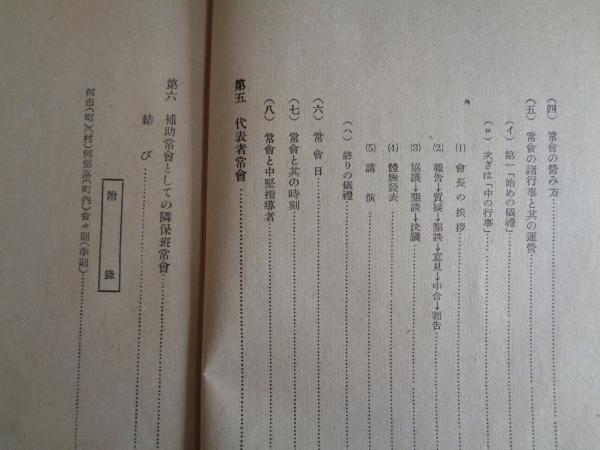 (四) 常會の營み方
(五) 常會の諸行事と其の運營
(イ) 第一「始めの儀禮」
(ロ) 次ぎは「中の行事」
(1) 會長の挨拶
(2) 報告→質疑→懇談→意見→申合→報告
(3) 協議→懇談→決議
(4) 體驗發表
(5) 講演
(ハ) 終りの儀禮
(六) 常會日
(七) 常會と其の時刻
(八) 常會と中堅指導者
第五 代表者常會
第六 補助常會としての隣保班常會
結び
附錄
何市(町)(村)何部落(町內)會々則(準則)